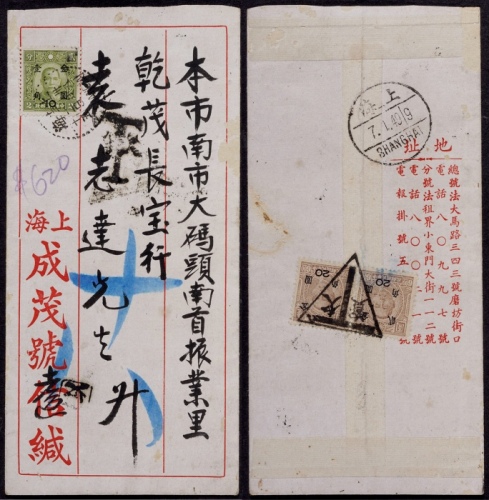 本市南市大碼頭南首振業里
乾茂長宝行
袁志達先生 升
上海
成茂號 緘
$620
10
角
上海
7.1.40 19
SHANGHAI
地址
總號法大馬路三四三號磨坊街口
電話八〇九九七號
分號法租界小東門大街一一二號
電話八〇〇二一號
電報掛號五
20
角
20
欠
資